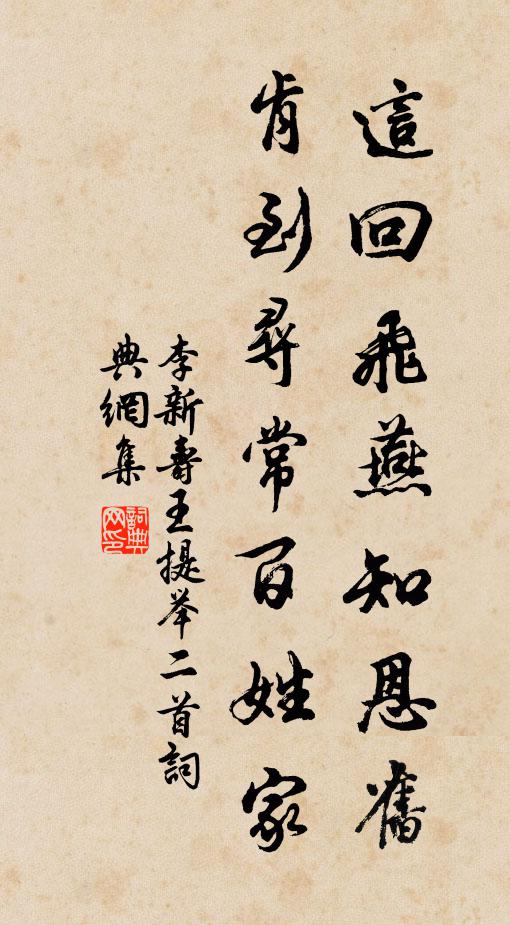 這回飛燕知恩舊
肯到尋常百姓家
李新壽王提举二首詞
典網集
詞典
网印